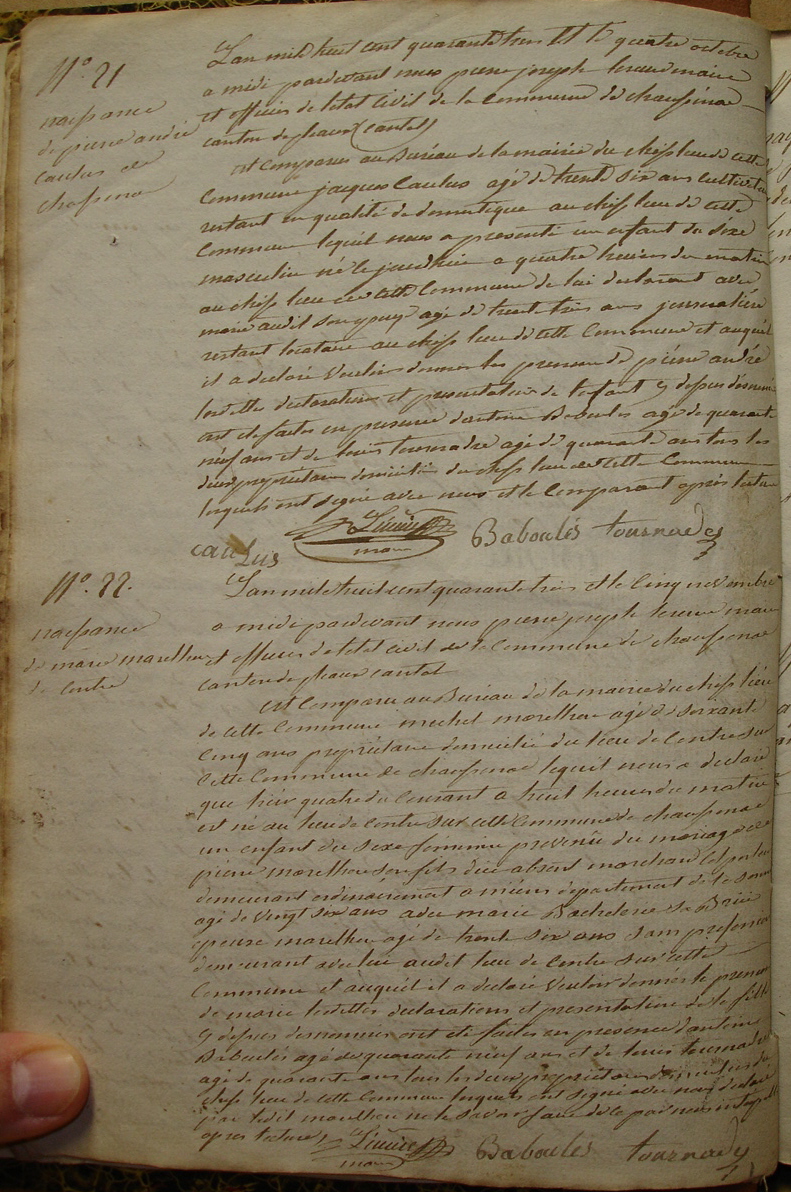 N.º 21
naissance
de pierre andré
caulus de
chaussenac
L'an mil huit cent quarante trois et le quatre octobre
a midi pardevant nous pierre joseph maire
et officier de l'etat civil de la commune de chaussenac
canton de pleaux (cantal)
est comparu au Bureau de la mairie du chef lieu de cette
Commune jacques Caulus agé de trente six ans cultivateur
restant en qualité de domestique au chef lieu de cette
Commune lequel nous a presenté un enfant du sexe
masculin né le jourd'hier a quatre heures du matin
au chef lieu de cette Commune de lui declarant avec
marie audit son epouse agé de trente trois ans journalière
restant locataire au chef lieu de cette Commune et auquel
il a declaré vouloir donner les prenoms de pierre andré
lesdittes declarations et presentation de l'enfant y dessus denommé
ont été faites en presence d'antoine Baboulés agé de quarante
neuf ans et de louis tournadre agé de quarante ans tous les
deux propriétaires domiciliés du chef lieu de cette Commune
lesquels ont signé avec nous et le Comparant après lecture
caulus maire Baboulés tournade
N.º 22.
naissance
de marie marelhou
de Contre
L'an mil huit cent quarante trois et le Cinq novembre
a midi pardevant nous pierre joseph maire
et officier de l'etat civil de la Commune de chaussenac
canton de pleaux cantal
est Comparu au Bureau de la mairie du chef lieu
de cette Commune michel marelhou agé de soixante
Cinq ans propriétaire domicilié du lieu de Contre sur
Cette Commune de chaussenac lequel nous a declaré
que hier quatre du Courant a huit heures du matin
est né au lieu de Contre sur cette Commune de chaussenac
un enfant du sexe feminin provenue du mariage de
pierre marelhou son fils absent marchand
demeurant ordinairement a departement de la somme
agé de vingt six ans avec marie Bachelerie sa
epouse marelhou agé de trente six ans sans profession
demeurant avec lui audit lieu de Contre sur cette
Commune et auquel il a declaré vouloir donner le prenom
de marie lesdittes declarations et presentation de la fille
y dessus denommée ont été faites en presence d'antoine
Baboulés agé de quarante neuf ans et de louis tournadre
agé de quarante ans tous les deux propriétaires domiciliés du
chef lieu de cette Commune lesquels ont signé avec nous
ledit marelhou ne le savoir faire de ce par nous
apres lecture
maire Baboulés tournade